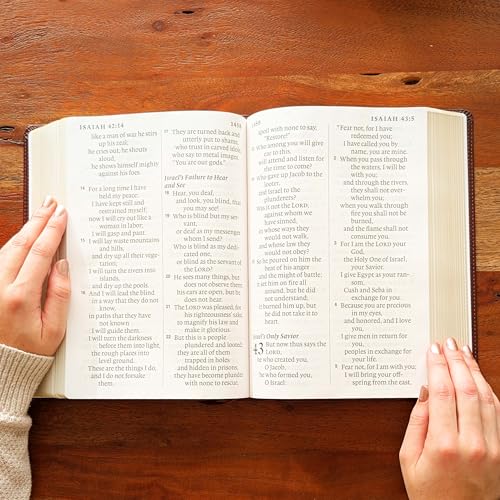 ISAIAH 42:14
like a man of war he stirs
up his zeal;
he cries out, he shouts
aloud,
he shows himself mighty
against his foes.
14 For a long time I have
held my peace;
I have kept still and
restrained myself;
now I will cry out like a
woman in labor;
I will gasp and pant.
15 I will lay waste mountains
and hills,
and dry up all their vege-
tation;
I will turn the rivers into
islands,
and dry up the pools.
16 And I will lead the blind
in a way that they do not
know,
in paths that they have
not known
I will guide them.
I will turn the darkness
before them into light,
the rough places into
level ground.
These are the things I do,
and I do not forsake
them.
17 They are turned back and
utterly put to shame,
who trust in carved idols,
who say to metal images,
"You are our gods."
Israel's Failure to Hear
and See
18 Hear, you deaf,
and look, you blind, that
you may see!
19 Who is blind but my ser-
vant,
or deaf as my messenger
whom I send?
Who is blind as my dedi-
cated one,
or blind as the servant of
the LORD?
20 He sees many things, but
does not observe them;
his ears are open, but he
does not hear.
21 The LORD was pleased, for
his righteousness' sake,
to magnify his law and
make it glorious.
22 But this is a people
plundered and looted;
they are all of them
trapped in holes
and hidden in prisons;
they have become plunder
with none to rescue,
ISAIAH 43:5
spoil with none to say,
"Restore!"
Who among you will give
ear to this,
will attend and listen for
the time to come?
Who gave up Jacob to the
looter,
and Israel to the
plunderers?
Was it not the LORD,
against whom we
have sinned,
in whose ways they
would not walk,
and whose law they
would not obey?
So he poured on him the
heat of his anger
and the might of battle;
it set him on fire all
around, but he did
not understand;
it burned him up, but
he did not take it to
heart.
Israel's Only Savior
43 But now thus says the
LORD,
he who created you,
O Jacob,
he who formed you,
O Israel:
"Fear not, for I have
redeemed you;
I have called you by
name, you are mine.
2 When you pass through the
waters, I will be with
you;
and through the rivers,
they shall not over-
whelm you;
when you walk through
fire you shall not be
burned,
and the flame shall not
consume you.
3 For I am the LORD your
God,
the Holy One of Israel,
your Savior.
I give Egypt as your ran-
som,
Cush and Seba in
exchange for you.
4 Because you are precious
in my eyes,
and honored, and I love
you,
I give men in return for
you,
peoples in exchange for
your life.
5 Fear not, for I am with you;
I will bring your off-
spring from the east,